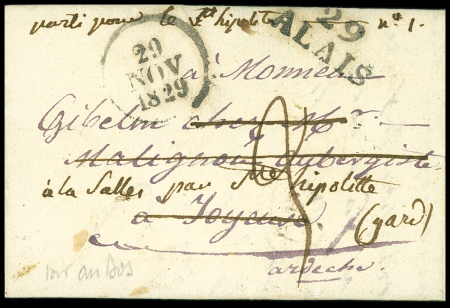 parti pour le St hipolite n° 1.
29
ALAIS
29
NOV
1829
à Monsieur
Gibelin chez Mr
Malignon aubergiste
à la Salles par St hipolitte
à Joyeuse (gard)
ardeche
voir au Dos